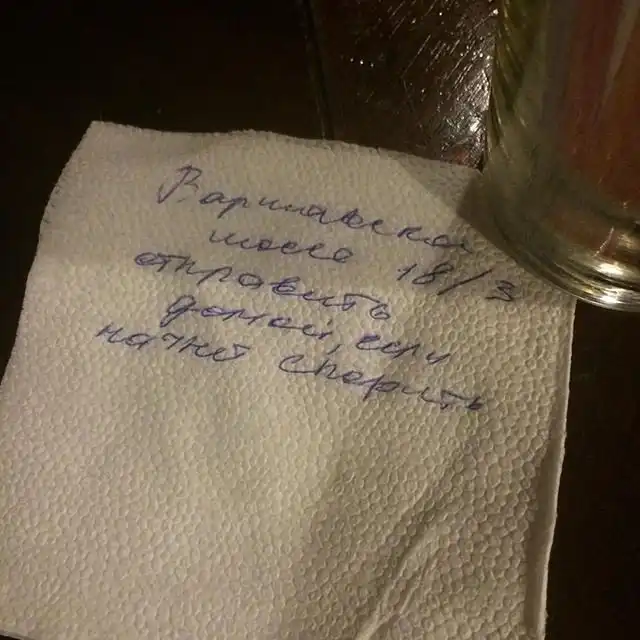 Варшавское
шоссе 18/3
отправить
домой, если
начнет спорить